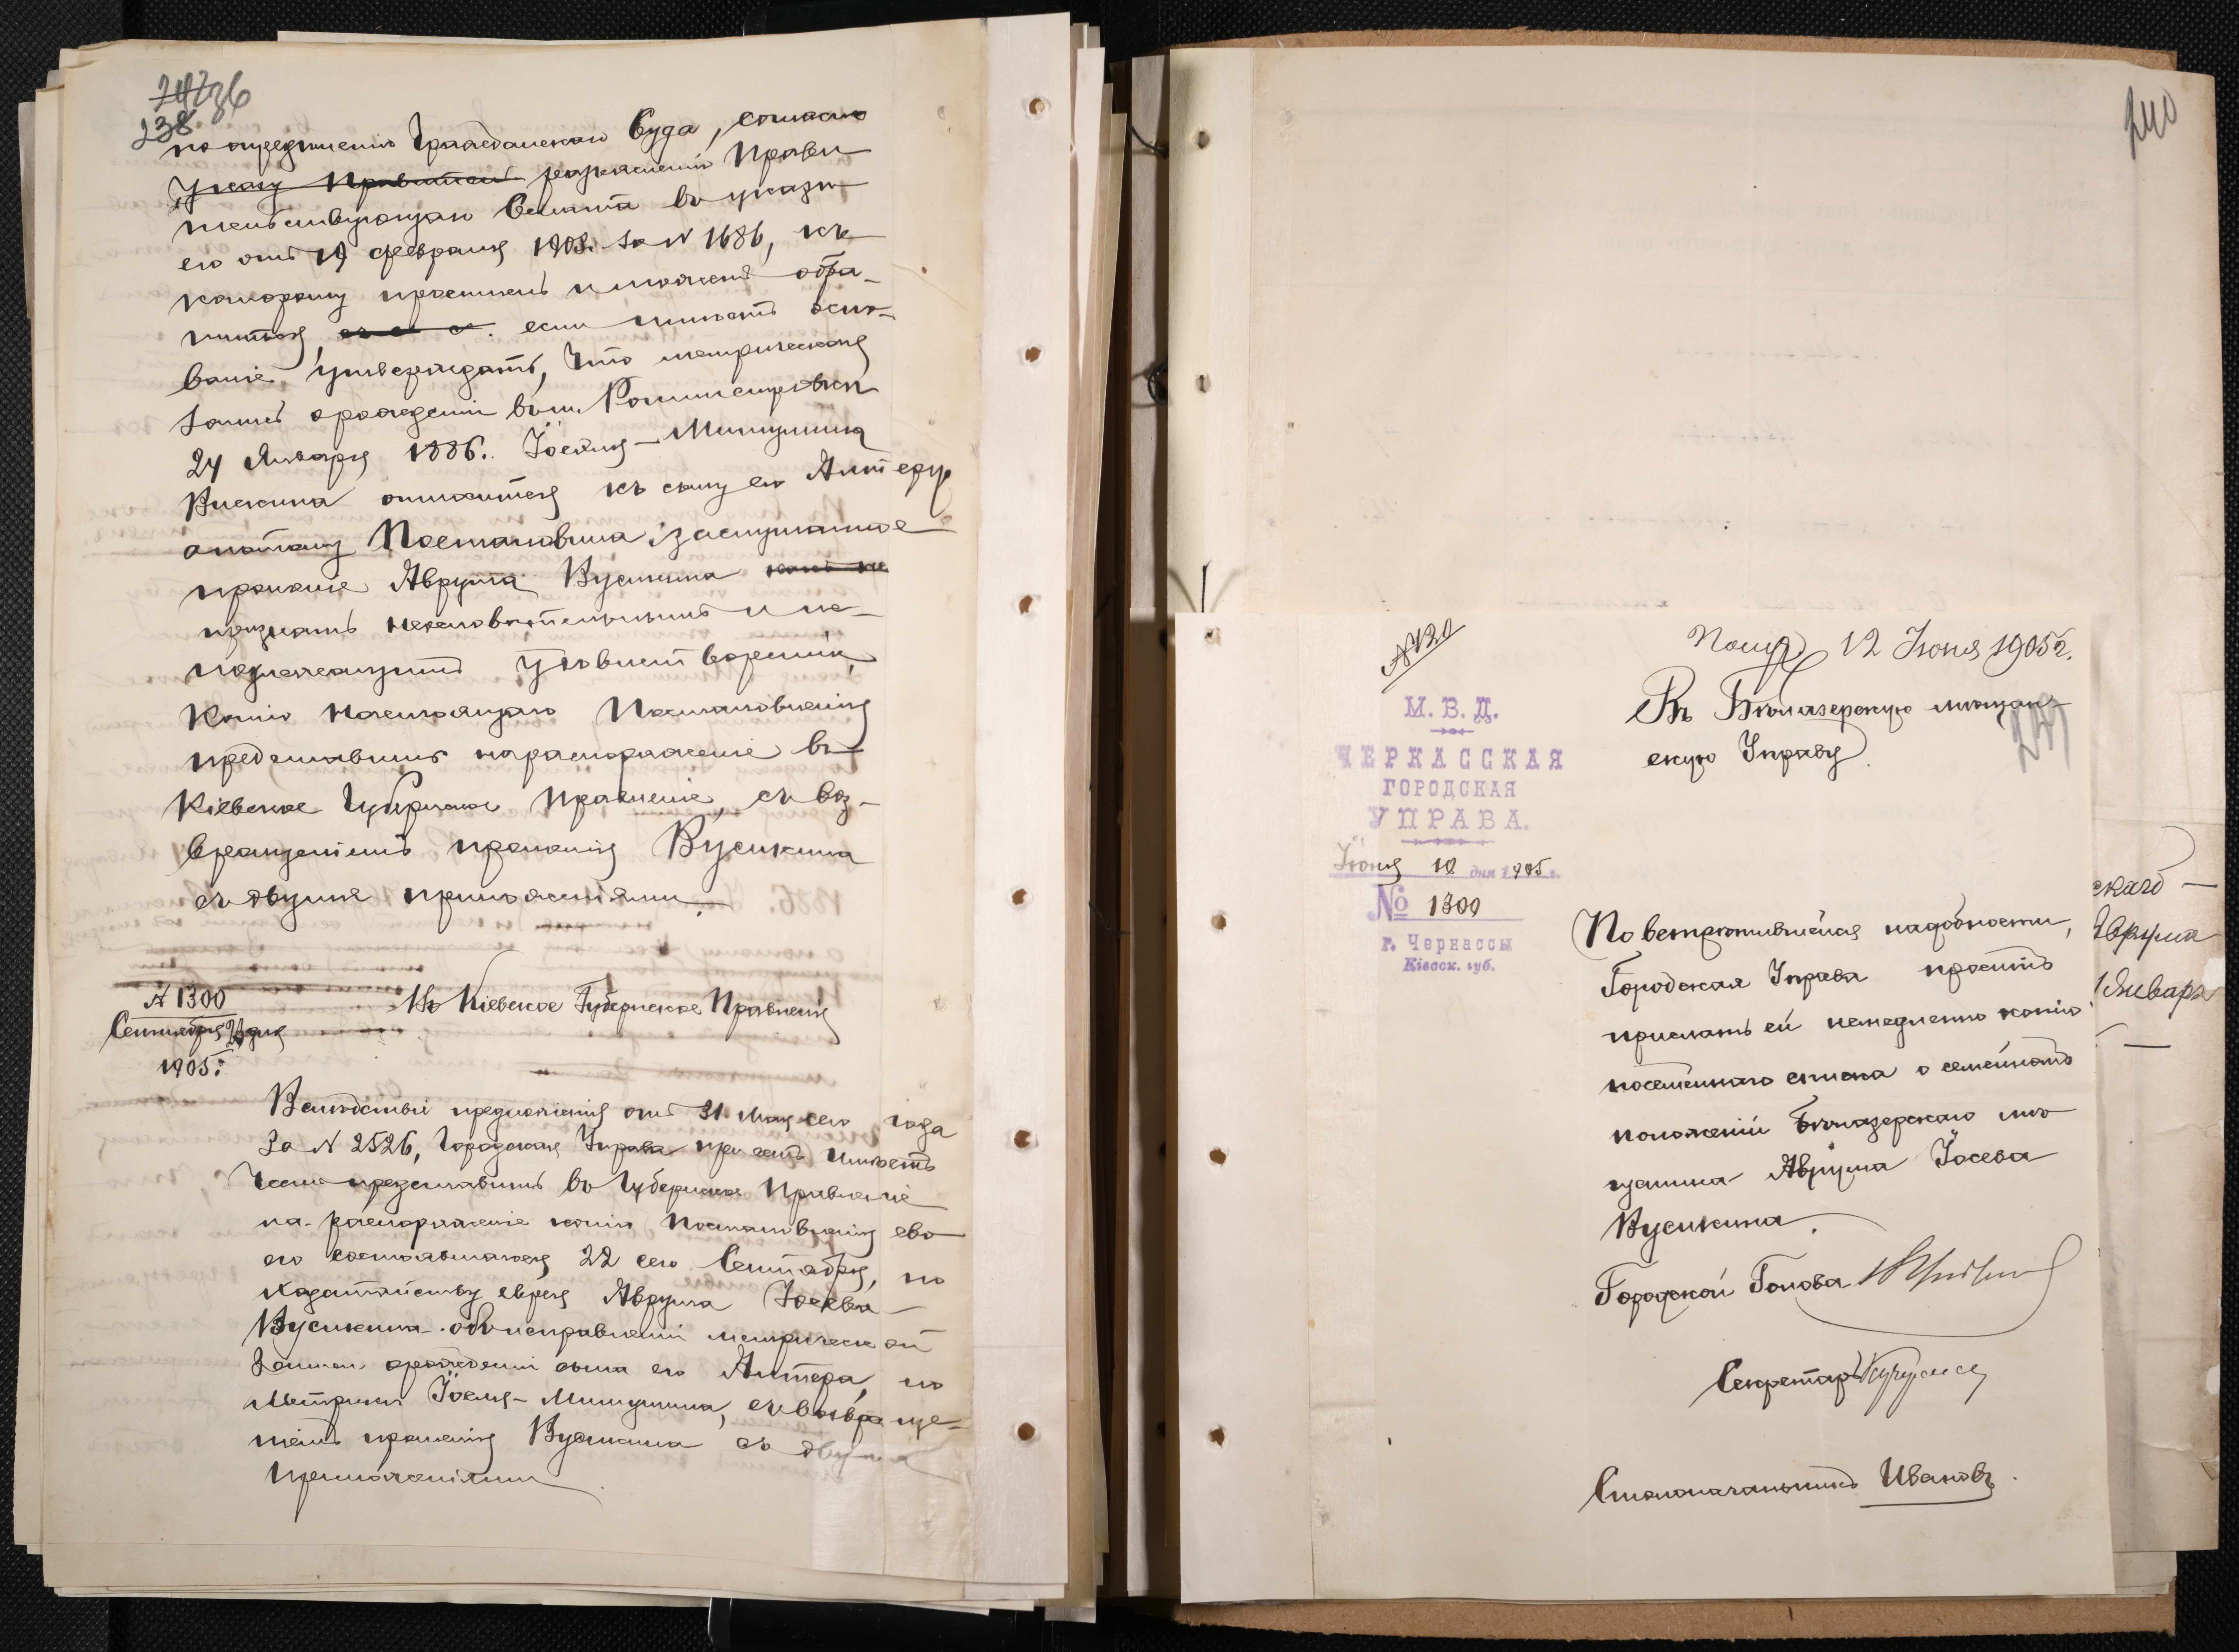 238
по определенію Гражданскаго Суда, согласно
Указу Правител разъясненію Прави
тельствующаго Сената въ указѣ
его отъ 19 февраля 1903. за № 1686, къ
которому проситель и можетъ обра-
титься, если имѣетъ осно-
ваніе утверждать, что метрическая
запись о рожденіи въ м. Ротмистровкѣ
24 Января 1886. Іосель-Мишулима
Вускина относится къ сыну его Алтеру
а потому Постановила: заслушанное
прошеніе Аврума Вускина
признать неосновательнымъ и не
подлежащимъ удовлетворенію,
Копію настоящаго Постановленія
представить на распоряженіе въ
Кіевское Губернское Правленіе, съ воз-
вращеніемъ прошенія Вускина
съ двумя приложеніями.
№ 1300
Сентября дня
1905:
Въ Кіевское Губернское Правленіе
Вслѣдствіе предложенія отъ 31 Мая сего года
За № 2526, Городская Управа при семъ имѣетъ
честь представить въ Губернское Правленіе
на распоряженіе копію Постановленія сво
его состоявшагося 22 сего Сентября, по
ходатайству еврея Аврума Іосева
Вускина объ исправленіи метрической
записи о рожденіи сына его Алтера, по
метрикѣ Іосель-Мишулима, съ возвраще-
ніемъ прошенія Вускина съ двумя
приложеніями
240
№ 120
Получ 12 Іюня 1905 г.
М. В. Д.
ЧЕРКАССКАЯ
ГОРОДСКАЯ
УПРАВА.
Іюня 10 дня 1905 г.
№ 1309
г. Черкассы
Кіевск. губ.
Въ Бѣлозерскую мѣщан-
скую Управу
239
По встрѣтившейся надобности,
Городская Управа проситъ
прислать ей немедленно копію
посемейнаго списка о семейномъ
положеніи Бѣлозерскаго мѣ
щанина Аврума Іосева
Вускина.
Городской Голова
Секретарь
Столоначальникъ Ивановъ.
скаго
Аврума
Январ